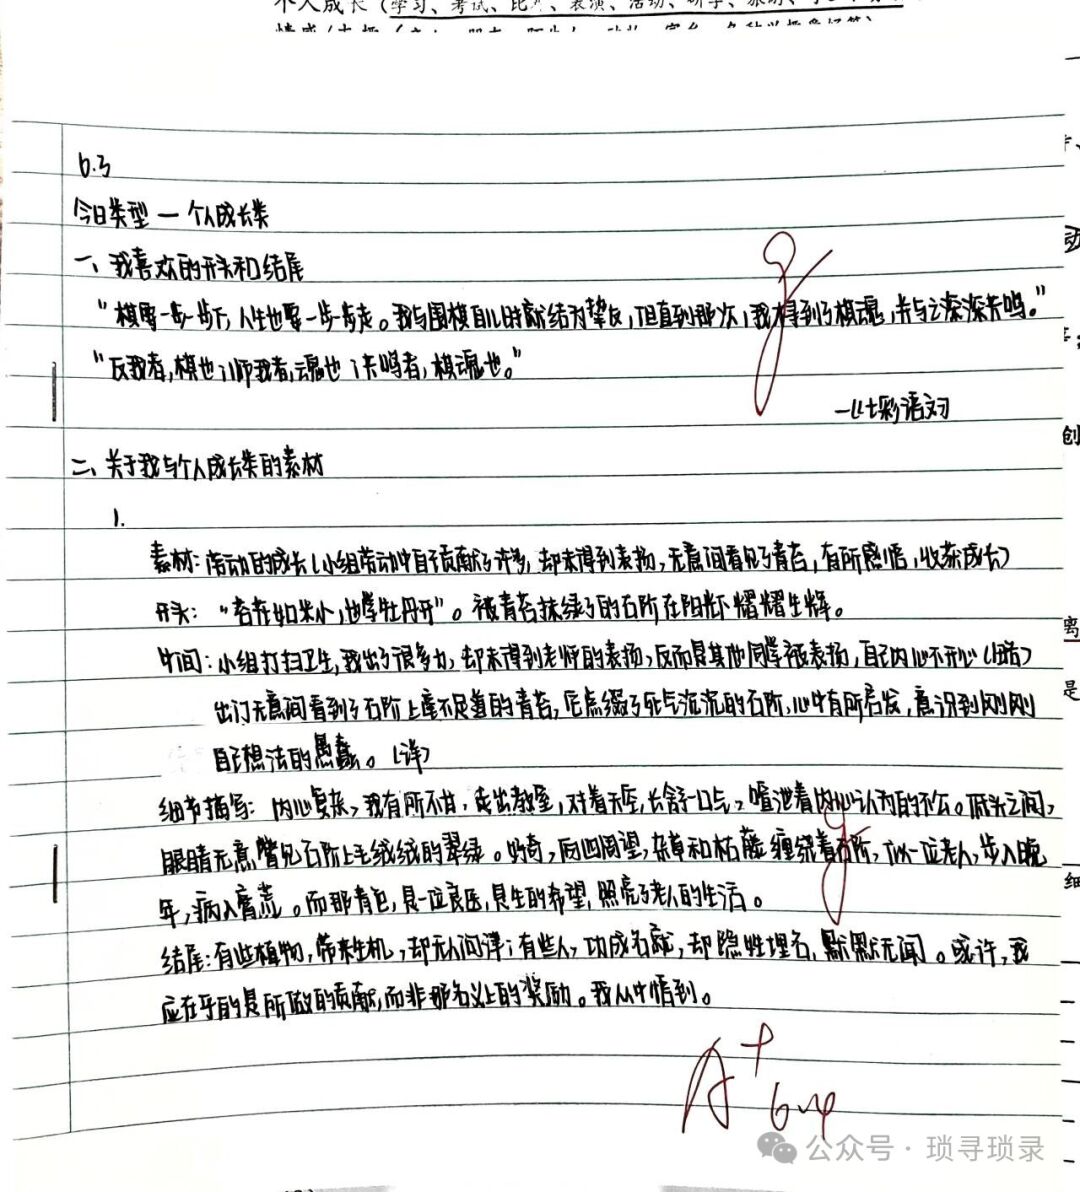 个人成长（学习、考试、比赛、表演、活动、研学、旅游、
6.3
今日类型一个人成长类
一、我喜欢的开头和结尾
“棋要一步一步下，人生也要一步一步走。我与围棋自儿时就结为挚友，但直到那次，我才得到了棋魂，并与之深深共鸣。”
“友我者，棋也；师我者，魂也；共鸣者，棋魂也。”
—《七彩语文》
二、关于我与个人成长类的素材
1.
素材：劳动的成长（小组劳动中自己贡献了许多，却未得到表扬，无意间看见了青苔，有所感悟，收获成长）
开头：“苔花如米小，也学牡丹开”。被青苔抹绿了的石阶在阳光下熠耀生辉。
中间：小组打扫卫生，我出了很多力，却未得到老师的表扬，反而是其他同学被表扬，自己内心不开心（略）
出门无意间看到了石阶上毫不起眼的青苔，它点缀了死气沉沉的石阶，心中有所启发，意识到刚刚
自己想法的愚蠢。（详）
细节描写：内心复杂，我有所不甘，走出教室，对着天空，长舒一口气，宣泄着内心认为的不公。低头之间，
眼睛无意瞥见石阶上毛绒绒的翠绿。好奇，向四周望，杂草和枯藤缠绕着石阶，似一位老人，步入晚
年，病入膏肓。而那青色，是一位良医，是生的希望，照亮了老人的生活。
结尾：有些植物，带来生机，却无人问津；有些人，功成名就，却隐姓埋名，默默无闻。或许，我
应在乎的是所做的贡献，而非那名义上的奖励。我从中悟到。
A+
公众号·琐寻琐录
动
创
离
是
细